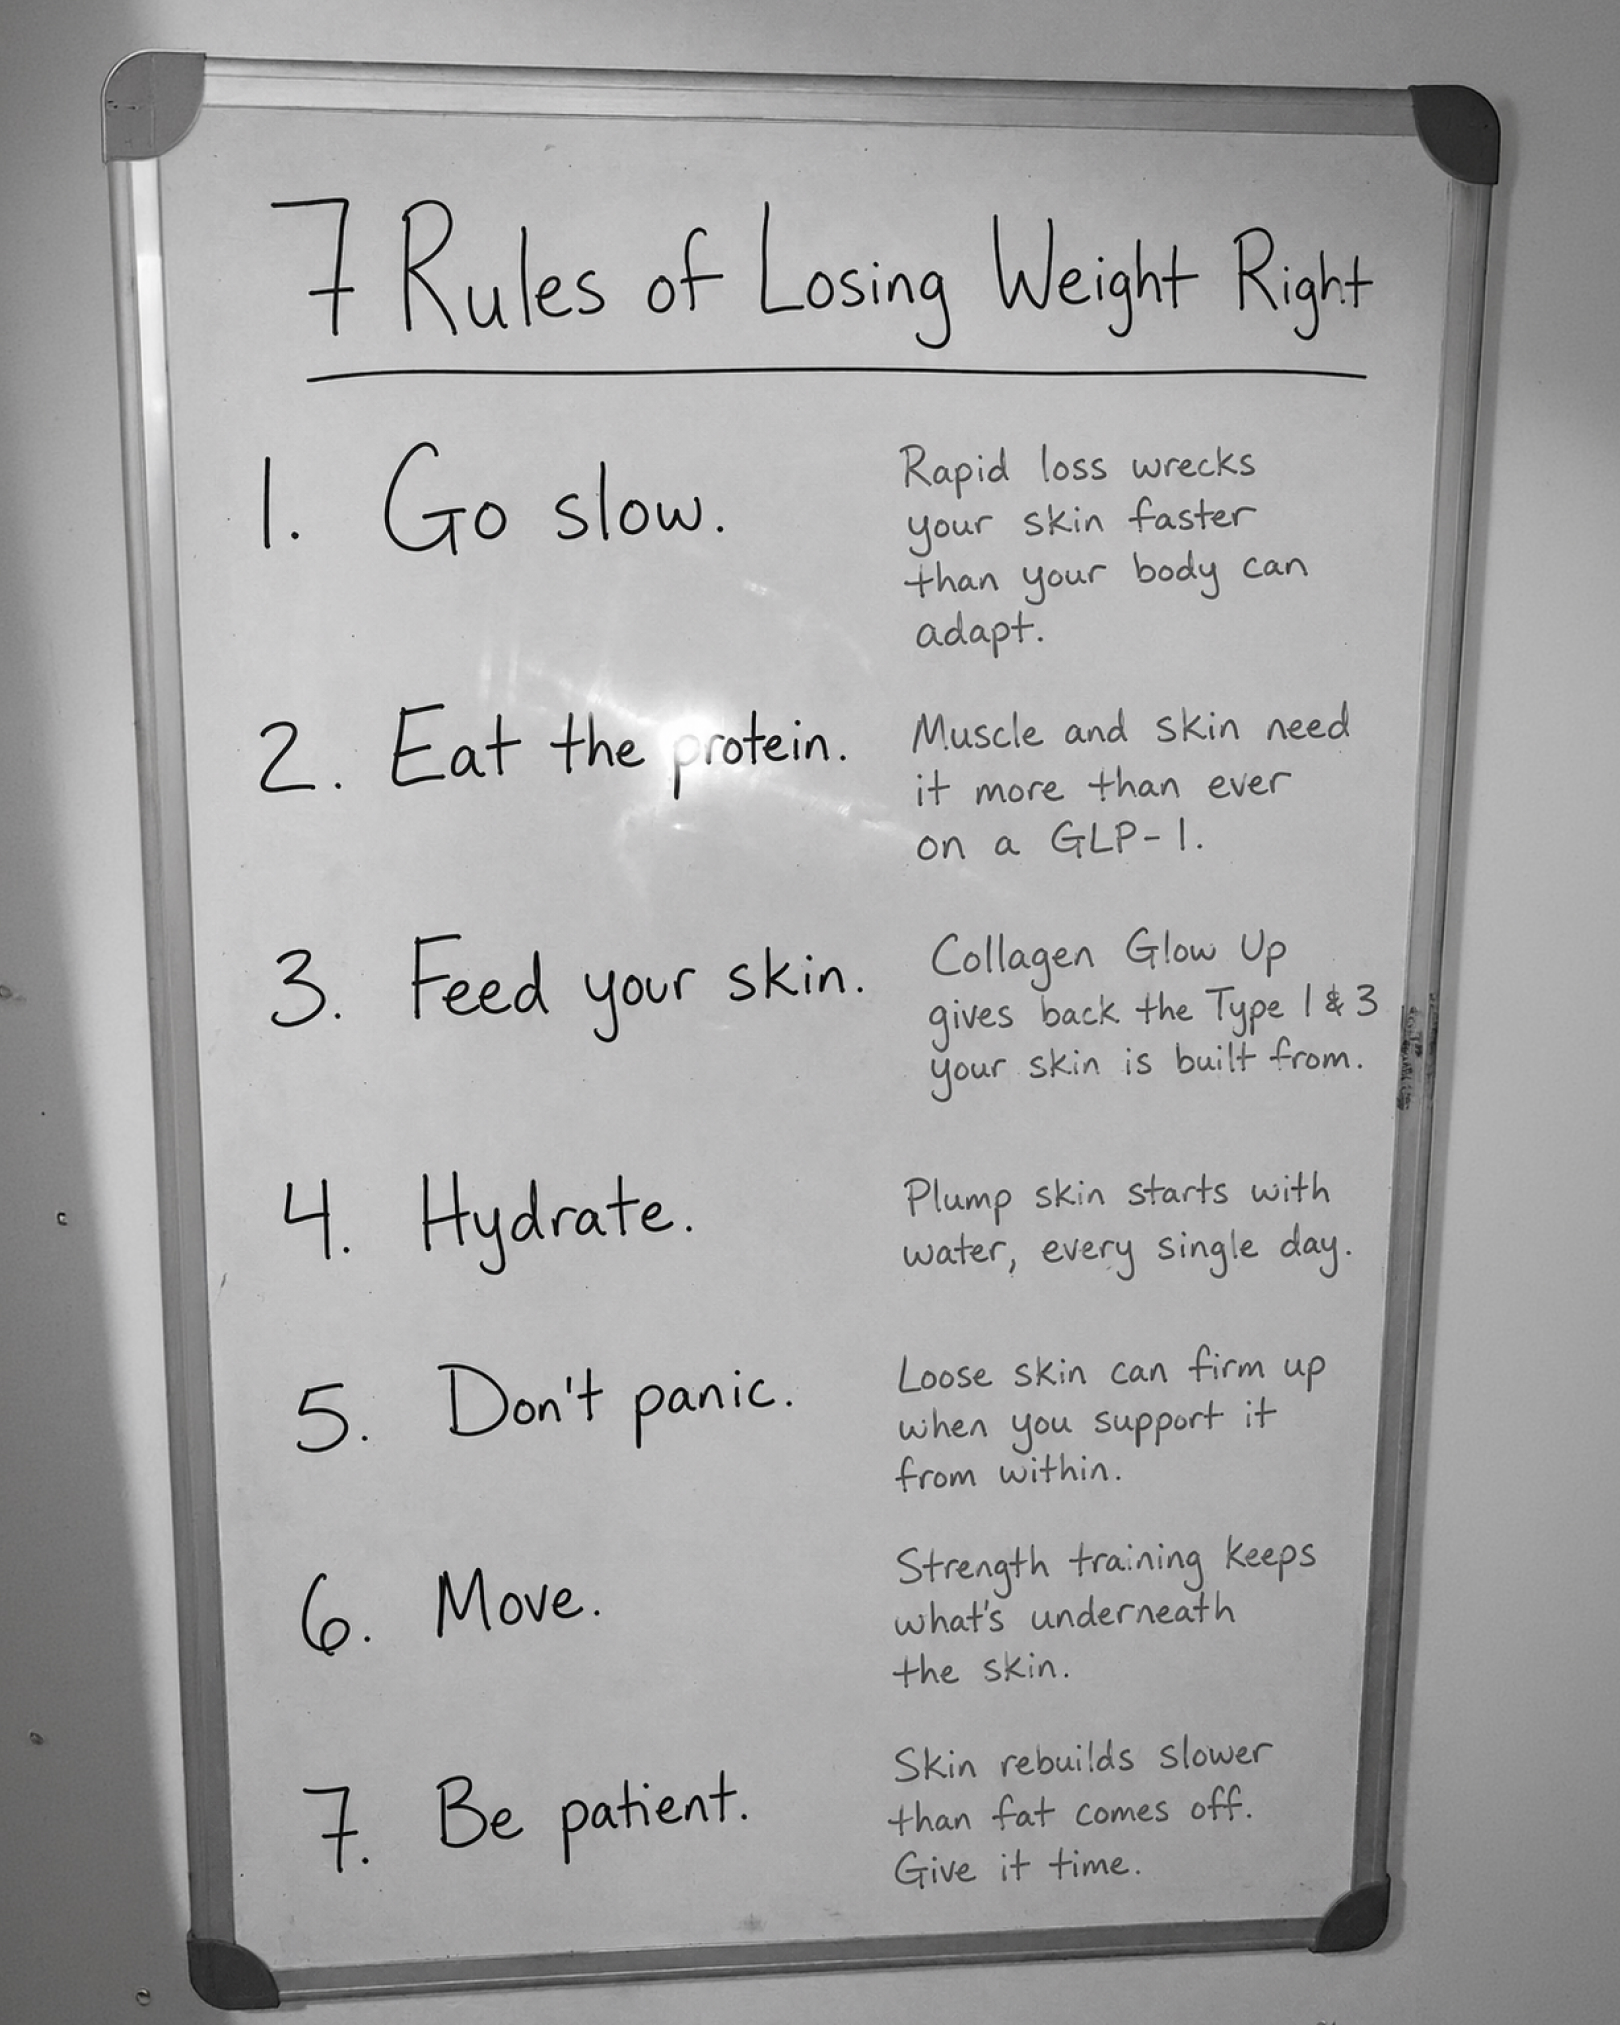 7 Rules of Losing Weight Right
1. Go slow.
Rapid loss wrecks
your skin faster
than your body can
adapt.
2. Eat the protein.
Muscle and skin need
it more than ever
on a GLP-1.
3. Feed your skin.
Collagen Glow Up
gives back the Type 1 & 3
your skin is built from.
4. Hydrate.
Plump skin starts with
water, every single day.
5. Don't panic.
Loose skin can firm up
when you support it
from within.
6. Move.
Strength training keeps
what's underneath
the skin.
7. Be patient.
Skin rebuilds slower
than fat comes off.
Give it time.